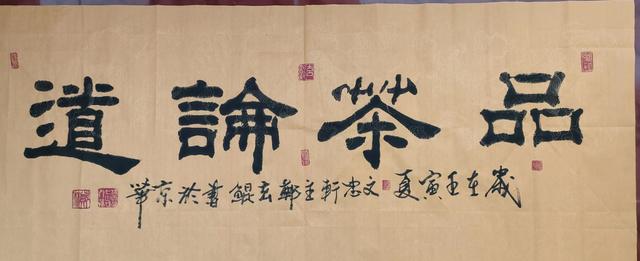 品茶論道
歲在壬寅夏文忠軒主鄭玄鯤書於京華